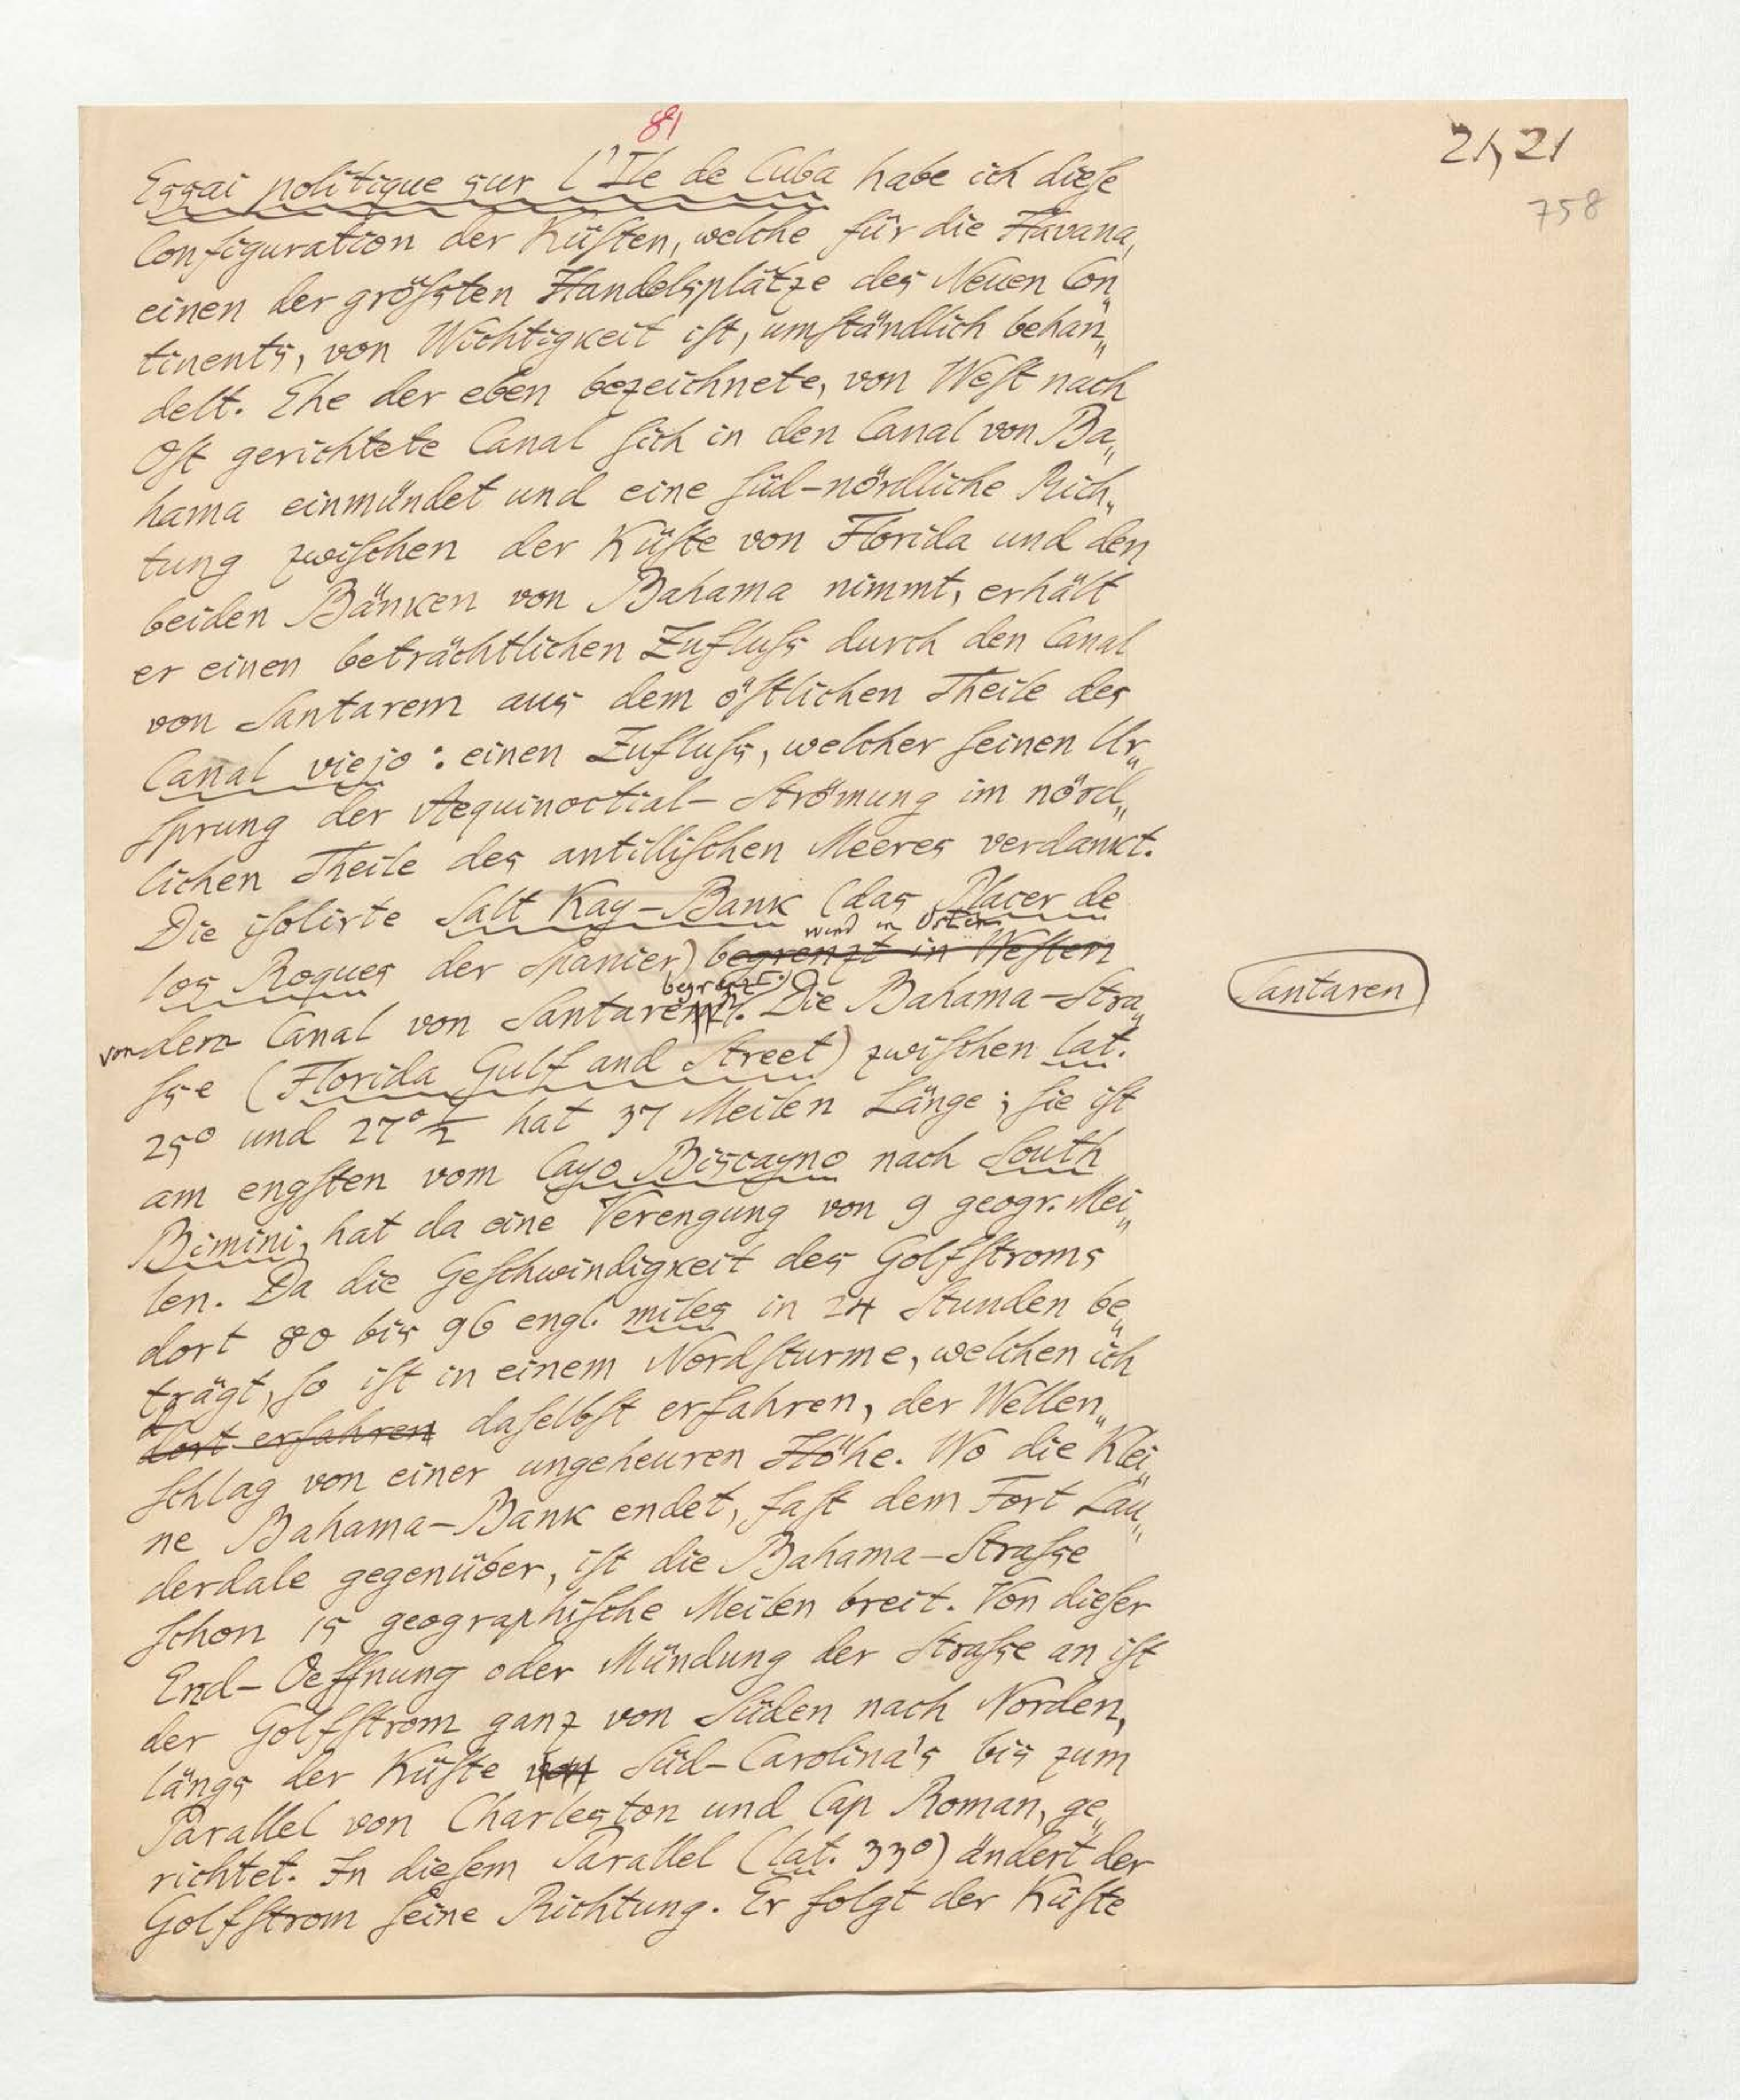 81
21, 21
758
Essai politique sur l'Ile de Cuba habe ich dieſe
Configuration der Küſten, welche für die Havana,
einen der gröſsten Handelsplätze des Neuen Con„
tinents, von Wichtigkeit iſt, umſtändlich behan„
delt. Ehe der eben bezeichnete, von Weſt nach
Oſt gerichtete Canal ſich in den Canal von Ba„
hama einmündet und eine ſüd-nördliche Rich„
tung zwiſchen der Küſte von Florida und den
beiden Bänken von Bahama nimmt, erhält
er einen beträchtlichen Zufluſs durch den Canal
von Santarem aus dem öſtlichen Theile des
Canal viejo: einen Zufluſs, welcher ſeinen Ur„
ſprung der Aequinoctial-Strömung im nörd„
lichen Theile des antilliſchen Meeres verdankt.
Die iſolirte Salt Kay-Bank (das Placer de
wird in Osten
los Roques der Spanier) begrenzt in Weſten
begrenzt.)
von dem Canal von Santaren. Die Bahama-Stra„
Santaren
ſse (Florida Gulf and Street) zwiſchen lat.
25° und 27°½ hat 37 Meilen Länge; ſie iſt
am engſten vom Cayo Biscayno nach South
Bimini, hat da eine Verengung von 9 geogr. Mei„
len. Da die Geſchwindigkeit des Golfſtroms
dort 80 bis 96 engl. miles in 24 Stunden be„
trägt, ſo iſt in einem Nordſturme, welchen ich
dort erfahren daſelbſt erfahren, der Wellen„
ſchlag von einer ungeheuren Höhe. Wo die Klei„
ne Bahama-Bank endet, faſt dem Fort Lau„
derdale gegenüber, iſt die Bahama-Straſse
ſchon 15 geographiſche Meilen breit. Von dieſer
End-Oeffnung oder Mündung der Straſse an iſt
der Golfſtrom ganz von Süden nach Norden,
längs der Küſte von Süd-Carolina's bis zum
Parallel von Charleston und Cap Roman, ge„
richtet. In dieſem Parallel (lat. 33°) ändert der
Golfſtrom ſeine Richtung. Er folgt der Küſte